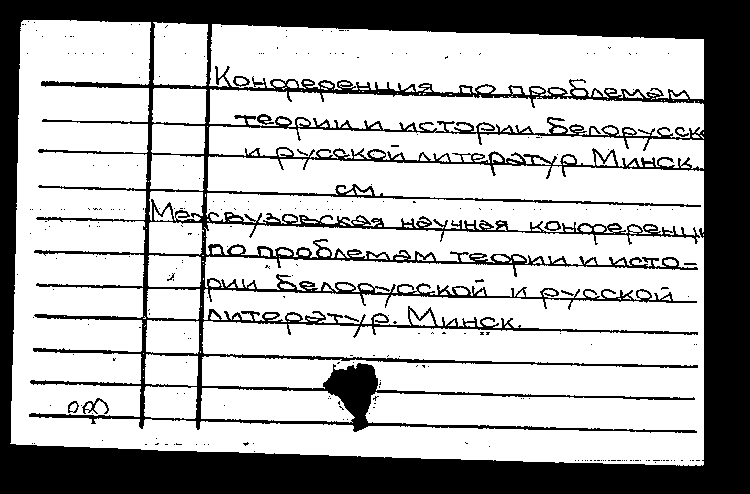 Конференция по проблемам
теории и истории белорусск
и русской литератур. Минск.
см.
Межвузовская научная конференци
по проблемам теории и исто=
рии белорусской и русской
литератур. Минск.